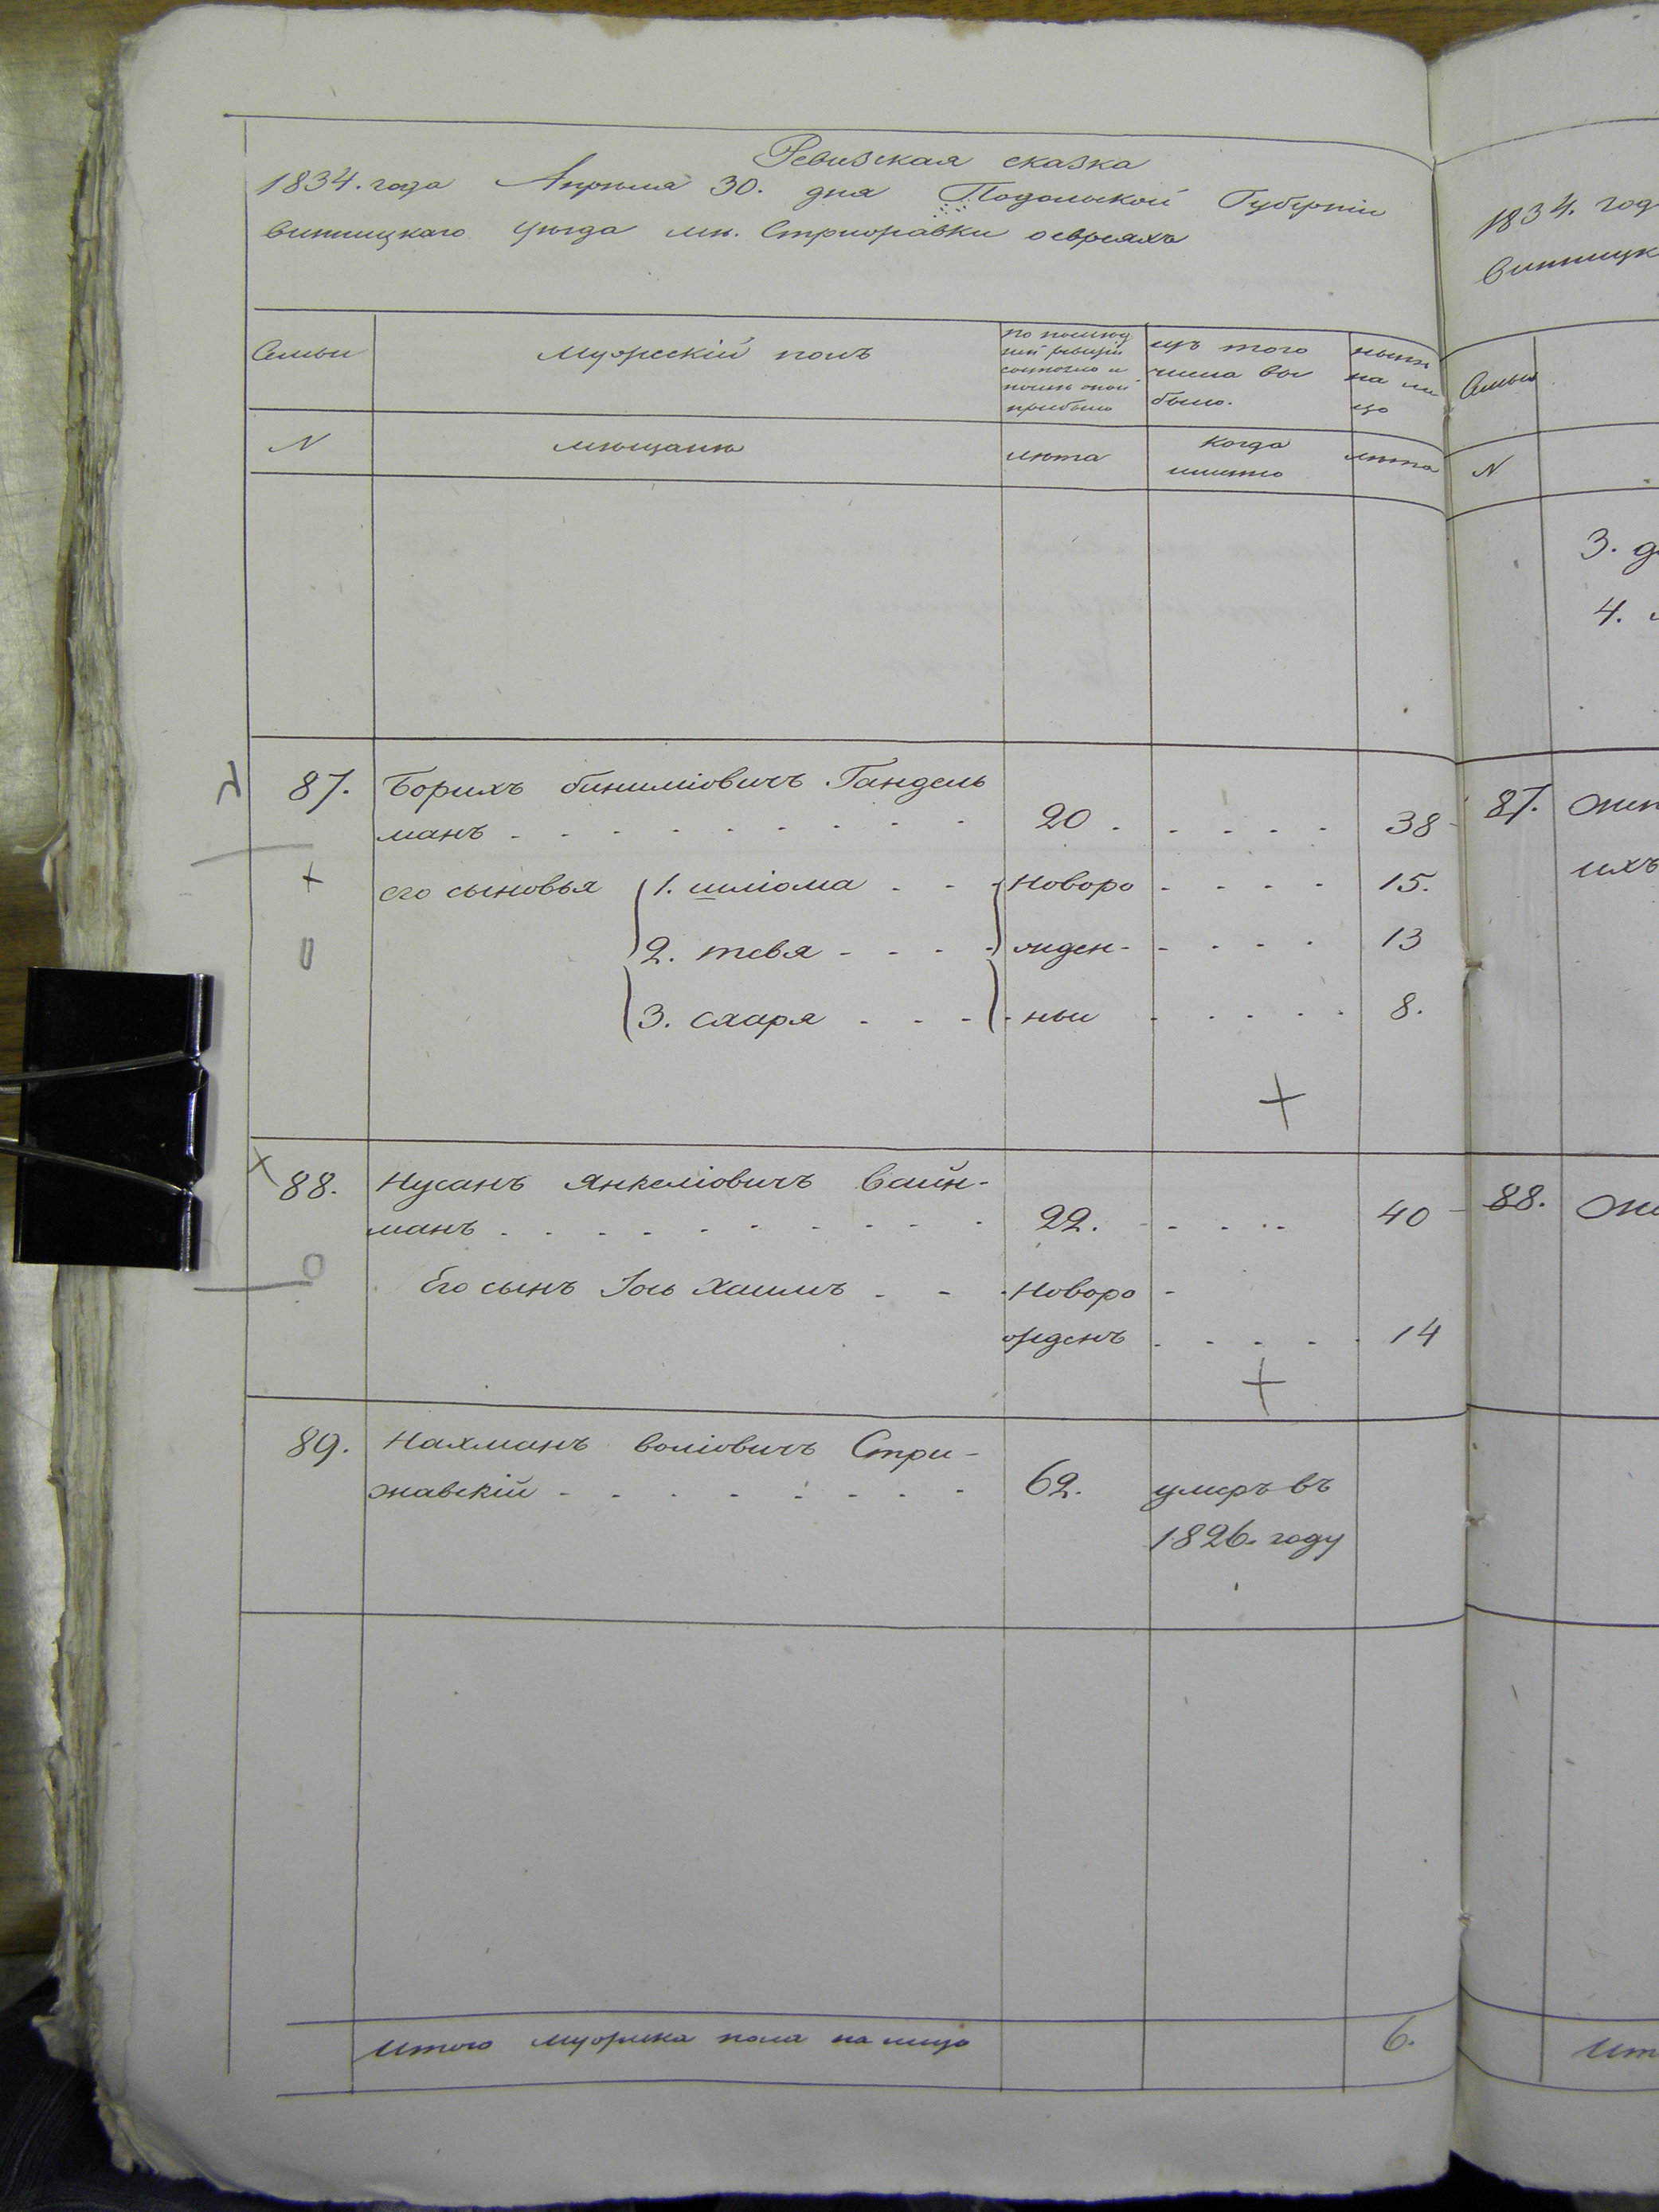 Ревизская сказка
1834. года Апреля 30. дня Подольской Губерніи
винницкаго уезда мѣ. Стрижавки о евреяхъ
Семьи
Мужескій полъ
по послед
ней ревизіи
состояло и
после оной
прибыло
изъ того
числа вы
было.
ныне
на ли
цо
N
мещане
лета
когда
имянно
лета
87.
Борихъ биниміовичъ Гандель
манъ
20
38
его сыновья
1. шліома
Новоро
15.
2. тевя
жден-
13
3. схаря
ныи
8.
88.
Нусанъ Янкеліовичъ Вайн-
манъ
22.
40
Его сынъ Іось Хаимъ
Новоро
жденъ
14
89.
Нахманъ воліовичъ Стри-
жавскій
62.
умеръ въ
1826. году
Итого мужеска пола на лицо
6.
1834. год
Винницк
Семьи
N
3.
4.
87.
ихъ
88.